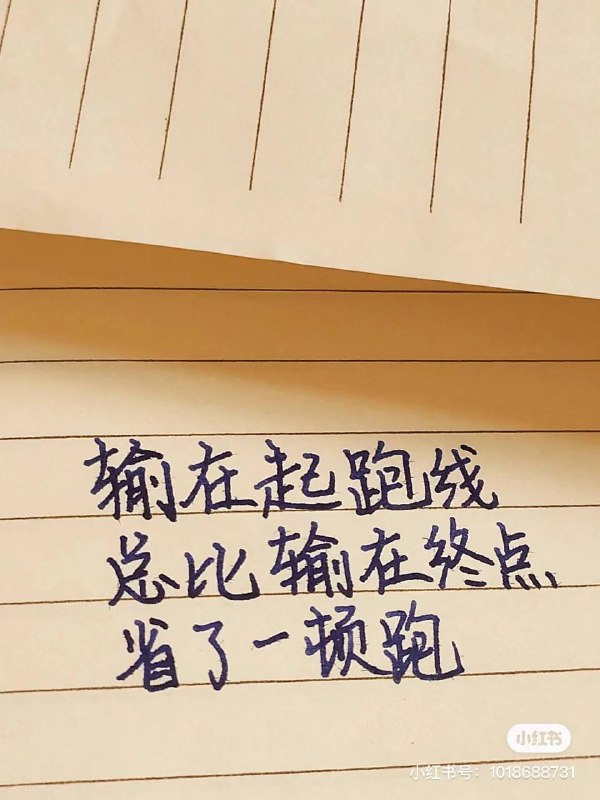 输在起跑线
总比输在终点
省了一顿跑
小红书
小红书号：1018688731